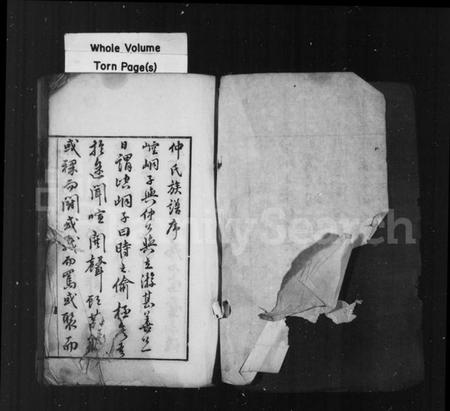 Whole Volume
Torn Page(s)
仲氏族譜序
崆峒子與仲公與立游甚善公
日謂崆峒子曰時之偷極矣吾
於途聞喧鬧聲
或稞而鬪或而罵或聚而
FamilySearch